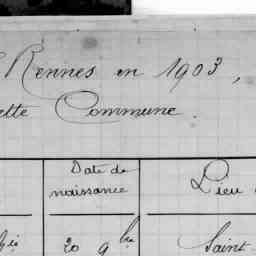 Rennes en 1903,
ette Commune.
Date de
naissance
Lieu
20 9bre
Saint-